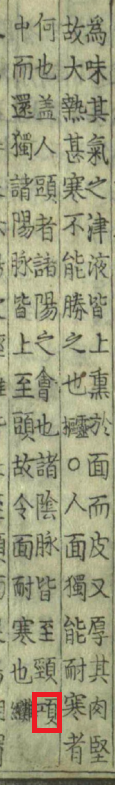 為味其氣之津液皆上熏於面而皮又厚其肉堅
故大熱甚寒不能勝之也○人面獨能耐寒者
何也盖人頭者諸陽之會也諸陰脉皆至頸項
中而還獨諸陽脉皆上至頭故令面耐寒也